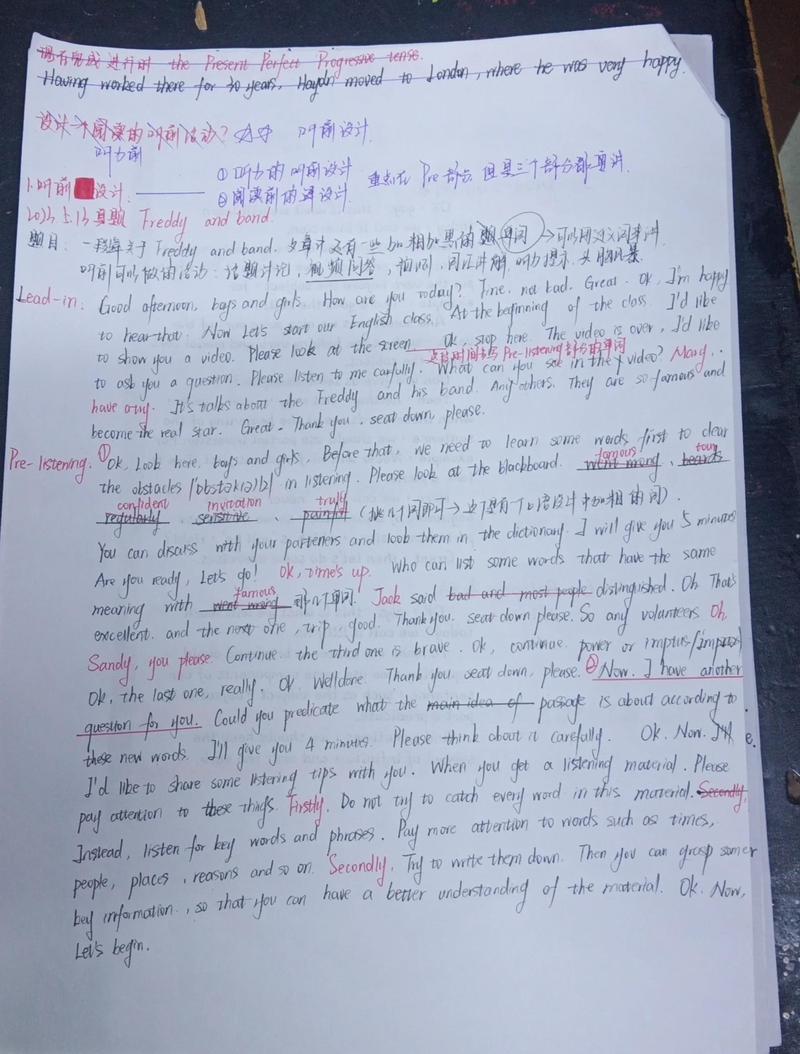 现在完成进行时 the Present Perfect Progressive tense.
Having worked there for 30 years, Haydn moved to London, where he was very happy.
设计一个阅读的听前活动? 听前设计
听力前
① 听力的听前设计 重点在 Pre 部分 但是三个部分都要讲.
1. 听前 设计: ② 阅读前的 设计.
2023.5.13真题 Freddy and band.
题目: 一 关于 Freddy and band. 还有一些 加粗加黑的 单词 → 可以用近义词来讲
听前可以做的活动: 话题讨论, 视频问答, 词汇讲解, 听力提示, 头脑风暴.
Lead-in: Good afternoon, boys and girls. How are you today? Fine, not bad. Great. Ok, I'm happy
to hear that. Now Let's start our English class. At the beginning of the class. I'd like
to show you a video. Please look at the screen Ok, stop here. The video is over, I'd like
Pre-listening部分的单词
to ask you a question. Please listen to me carfully. What can you see in the video? Mary..
have a try. It's talks about the Freddy and his band. Any others. They are so famous and
become the real star. Great. Thank you. seat down, please.
Pre-listening. ① Ok, Look here, boys and girls, Before that, we need to learn some words first to clear
famous tour
the obstacles in listening. Please look at the blackboard. went wrong, beards
confident invitation truly
regularly, sensitive, painful
You can discuss with your parteners and look them in the dictionary. I will give you 5 minutes
Are you ready, Let's go! Ok, time's up. Who can list some words that have the same
famous
meaning with went wrong Jack said bad and most people distinguished. Oh That's
excellent. and the next one, trip, good. Thank you. seat down please. So any volunteers Oh,
Sandy, you please. Continue. the third one is brave. Ok, continue. power or
Ok, the last one, really. Ok. Welldone. Thank you. seat down, please. ② Now. I have another
question for you. Could you predicate what the main idea of passage is about according to
these new words. I'll give you 4 minutes. Please think about it carefully. Ok. Now.
I'd like to share some listering tips with you. When you get a listening material. Please
pay attention to these things. Firstly, Do not try to catch every word in this material. Secondly,
Instead, listen for key words and phrases. Pay more attention to words such as times,
people, places, reasons and so on. Secondly, Try to write them down. Then you can grasp some
key information, so that you can have a better understanding of the material. Ok. Now,
Let's begin.